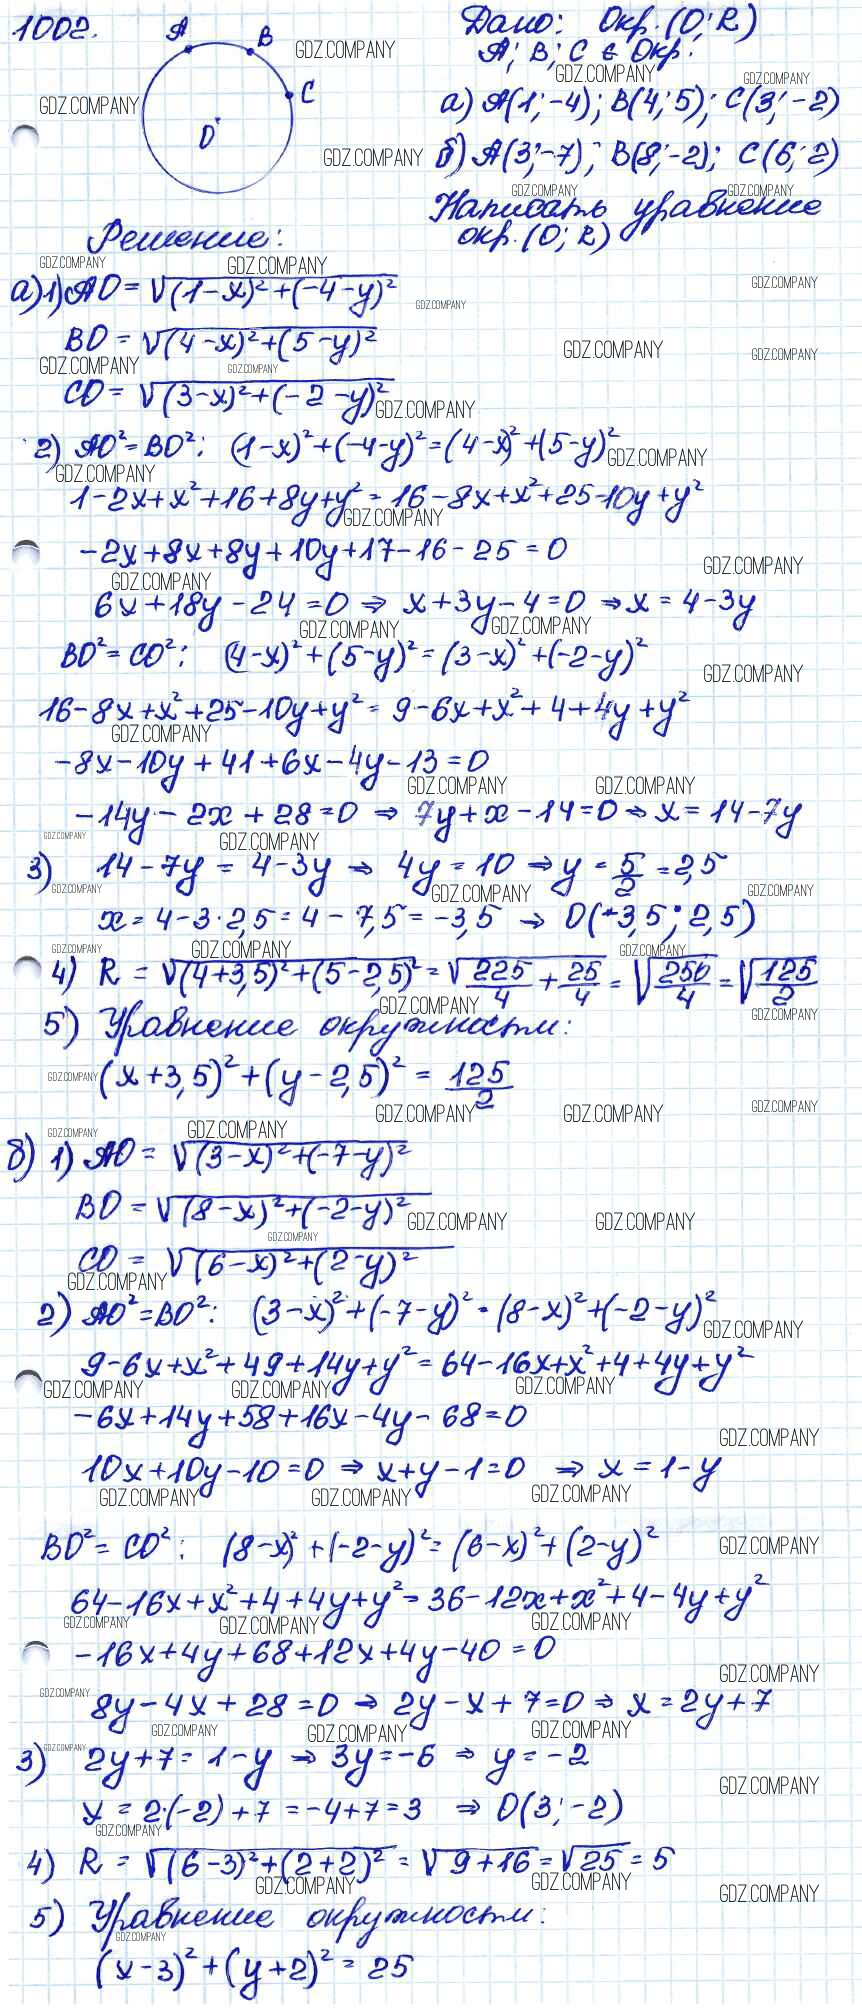 1002.
A
B
C
O
Дано: Окр.(O; R)
A; B; C ∈ Окр.
а) A(1; -4); B(4; 5); C(3; -2)
б) A(3; -7); B(8; -2); C(6; 2)
Написать уравнение
окр.(O; R)
Решение:
а) 1) AO = √(1-x)²+(-4-y)²
BO = √(4-x)²+(5-y)²
CO = √(3-x)²+(-2-y)²
2) AO²=BO²: (1-x)²+(-4-y)²=(4-x)²+(5-y)²
1-2x+x²+16+8y+y²=16-8x+x²+25-10y+y²
-2x+8x+8y+10y+17-16-25=0
6x+18y-24=0 ⇒ x+3y-4=0 ⇒ x=4-3y
BO²=CO²: (4-x)²+(5-y)²=(3-x)²+(-2-y)²
16-8x+x²+25-10y+y²=9-6x+x²+4+4y+y²
-8x-10y+41+6x-4y-13=0
-14y-2x+28=0 ⇒ 7y+x-14=0 ⇒ x=14-7y
3) 14-7y=4-3y ⇒ 4y=10 ⇒ y=5/2=2,5
x=4-3·2,5=4-7,5=-3,5 ⇒ O(-3,5; 2,5)
4) R = √(4+3,5)²+(5-2,5)² = √225/4+25/4 = √250/4 = √125/2
5) Уравнение окружности:
(x+3,5)²+(y-2,5)² = 125/2
б) 1) AO = √(3-x)²+(-7-y)²
BO = √(8-x)²+(-2-y)²
CO = √(6-x)²+(2-y)²
2) AO²=BO²: (3-x)²+(-7-y)²=(8-x)²+(-2-y)²
9-6x+x²+49+14y+y²=64-16x+x²+4+4y+y²
-6x+14y+58+16x-4y-68=0
10x+10y-10=0 ⇒ x+y-1=0 ⇒ x=1-y
BO²=CO²: (8-x)²+(-2-y)²=(6-x)²+(2-y)²
64-16x+x²+4+4y+y²=36-12x+x²+4-4y+y²
-16x+4y+68+12x+4y-40=0
8y-4x+28=0 ⇒ 2y-x+7=0 ⇒ x=2y+7
3) 2y+7=1-y ⇒ 3y=-6 ⇒ y=-2
x=2·(-2)+7=-4+7=3 ⇒ O(3; -2)
4) R = √(6-3)²+(2+2)² = √9+16 = √25 = 5
5) Уравнение окружности:
(x-3)²+(y+2)²=25
GDZ.COMPANY